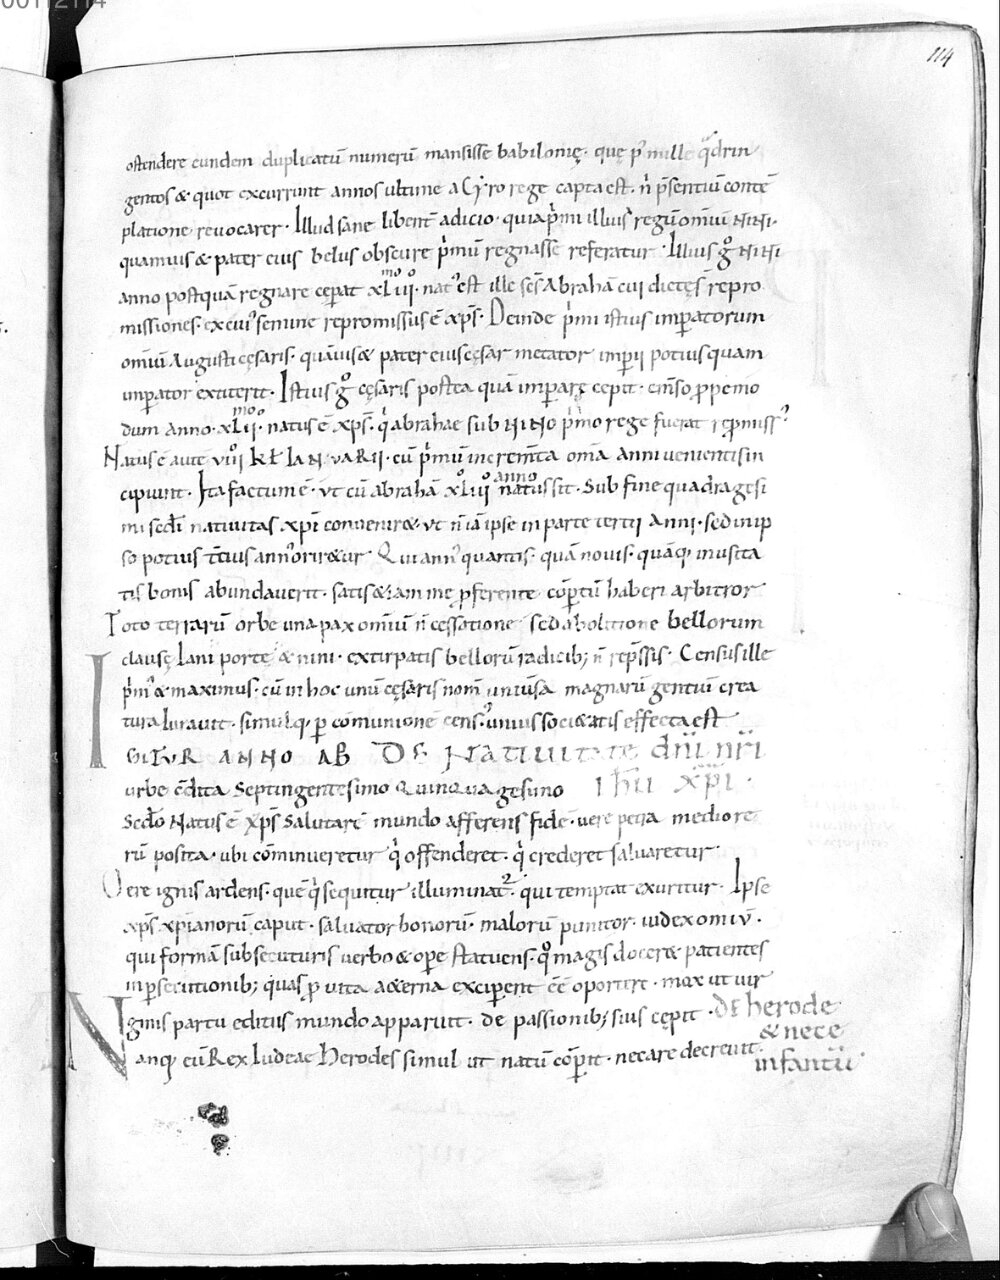 00112114
114
ostendere eundem duplicatū numerū mansisse babilonię · quę p̄ mille q̊drin
gentos & quot excurrunt annos ultime a Cyro rege capta est · n̄ p̄sentiū contē
platione revocarer · Illud sane libent̄ adicio · quia p̓mi illius regū omiū NINI ·
quamuis & pater eius belus obscure p̓mū regnasse referatur · Illius g̊ NINI
anno postquā regnare cęperat xl mo iii o · nat᾽ est ille sc̄s Abrahā cui dictęs̄ repro
missiones · ex cui᾽ semine repromissus ē xp̄s · Deinde p̓mi istius imp̄atorum
omiū Augusti cęsaris · quāuis & pater eius cęsar metator imp̄ii potius quam
imp̄ator extiterit · Istius g̊ cęsaris postea quā imp̄are cepit · em̄so p̱pemo
dum anno · xl mo ii o · natus ē xp̄s · q̓ abrahae sub NINO p̓mo rege fuerat rep̱miss᾽
Natus ē aute viii kł IANVARII · cū p̓mū increm̄ta om̄a anni venientis in
cipiunt · Ita factum ē · vt cū abrahā xl iii o anno natus sit · Sub fine quadragesi
mi sed̄i nativitas xp̄i conuenir& · vt n̄ iā ipse in parte tertii Anni · sed in ip
so potius t̄cius ann᾽ orir&ur · Qui ann᾽ quantis · quā nouis · quāq; inusita
tis bonis abundaverit · satis & iam me p̱ferente cōp̄tū haberi arbitror
Toto terrarū orbe una pax omiū n̄ cessatione sed abolitione bellorum
clausę Iani portę & nini · extirpatis bellorū radicib; n̄ rep̄ssis · Census ille
p̓m᾽ & maximus · cū in hoc unū cęsaris nom̄ uniūsa magnarū gentiū crea
tura Iurauit · simulq; p̱ cōmunionē cens᾽ unius soci&atis effecta est
IGITVR ANNO AB DE Natiuitate dn̄i nr̄i
urbe c̄dita Septingentesimo Quinquagesimo Ih̄u xp̄i ·
Sed̊o Natus ē xp̄s Salutarē mundo afferens fidē · vere petra medio re
rū posita · ubi cōminueretur q̓ offenderet · q̓ crederet saluaretur
Vere ignis ardens · que q̓ sequitur illuminat᾽ · qui temptat exuritur · Ipse
xp̄s xp̄ianorū caput · saluator bonorū · malorū punitor · iudex omiū ·
qui formā subsecuturis uerbo & ope statuens · q̊ magis docer& patientes
in p̱secutionib; quas p̱ uita a&erna excip̱ent ēē oporter& · mox ut uir
ginis partu editus mundo apparuit · de passionib; suis cępit · de herode
Nanq; cū Rex Iudeae Herodes simul ut natū cōp̱it · necare decreuit · & nece
infantū